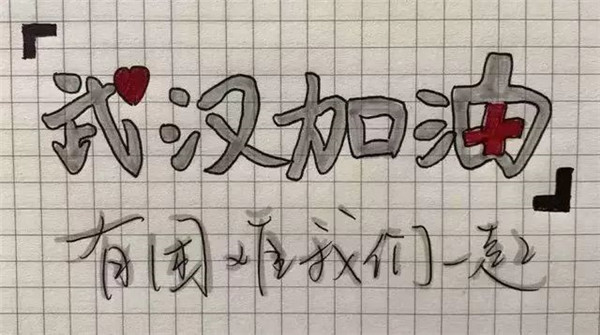 「武汉加油」
有困难我们一起